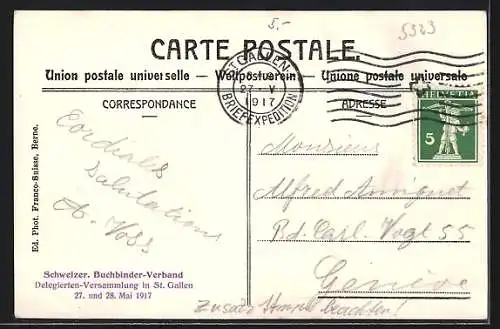 5.-
5323
CARTE POSTALE.
Union postale universelle. — Weltpostverein. — Unione postale universale
ST. GALLEN
27. V.
1917
BRIEFEXPEDITION
CORRESPONDANCE
ADRESSE
HELVETIA
5
Cordiales
salutations
A. Voss
Monsieur
Alfred Amiguet
Bd. Carl Vogt 55
Genève
Ed. Phot. Franco-Suisse, Berne.
Schweizer. Buchbinder-Verband
Delegierten-Versammlung in St. Gallen
27. und 28. Mai 1917
Zusatz Stempel beachten!